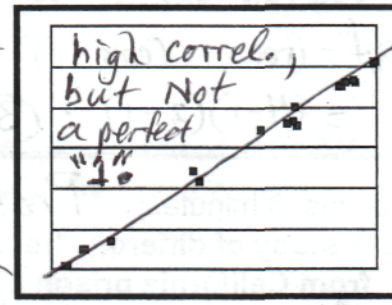 high correl.,
but Not
a perfect
"1".